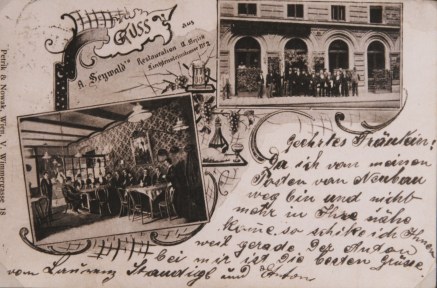 Gruss
aus
A. Seywald's Restauration II. Bezirk
Petrik & Nowak, Wien, V. Wimmergasse 18
Geehrtes Fräulein!
Da ich von meinen
Posten von Neubau
weg bin und nicht
mehr in Ihre nähe
kome, so schike ich Ihnen
weil gerade der Anton
bei mir ist die besten Grüsse
vom Laurenz Staudigl und Anton